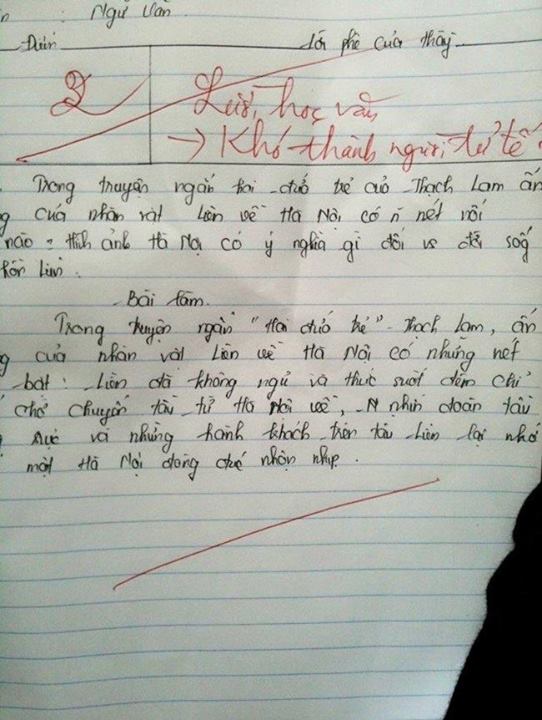 : Ngữ Văn
Điểm
Lời phê của thầy
2
Lười học văn
→ Khó thành người tử tế
. Trong truyện ngắn hai đứa trẻ của Thạch Lam ấn
g của nhân vật Liên về Hà Nội có n~ nét nổi
nào? Hình ảnh Hà Nội có ý nghĩa gì đối vs đời sốg
hồn Liên.
Bài làm.
Trong truyện ngắn "Hai đứa trẻ" - Thạch Lam, ấn
g của nhân vật Liên về Hà Nội có những nét
bật: Liên đã không ngủ và thức suốt đêm chỉ
chờ chuyến tàu từ Hà Nội về, nhìn đoàn tàu
rực và những hành khách trên tàu Liên lại nhớ
một Hà Nội đông đúc nhộn nhịp.